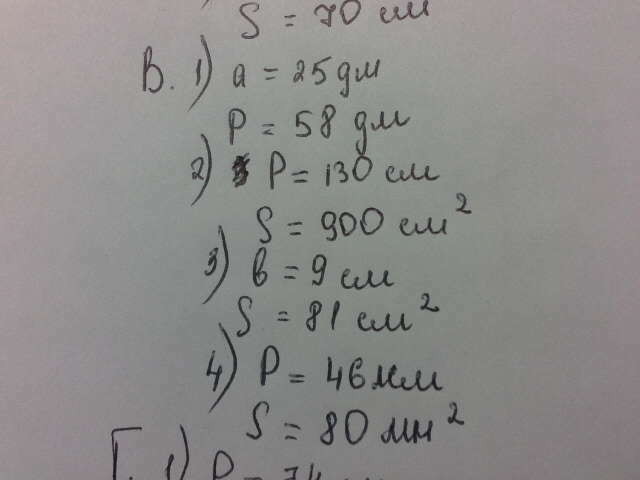 S = 70 см
В. 1) а = 25 дм
Р = 58 дм
2) Р = 130 см
S = 900 см²
3) в = 9 см
S = 81 см²
4) Р = 46 мм
S = 80 мм²
Г. 1) Р = 74